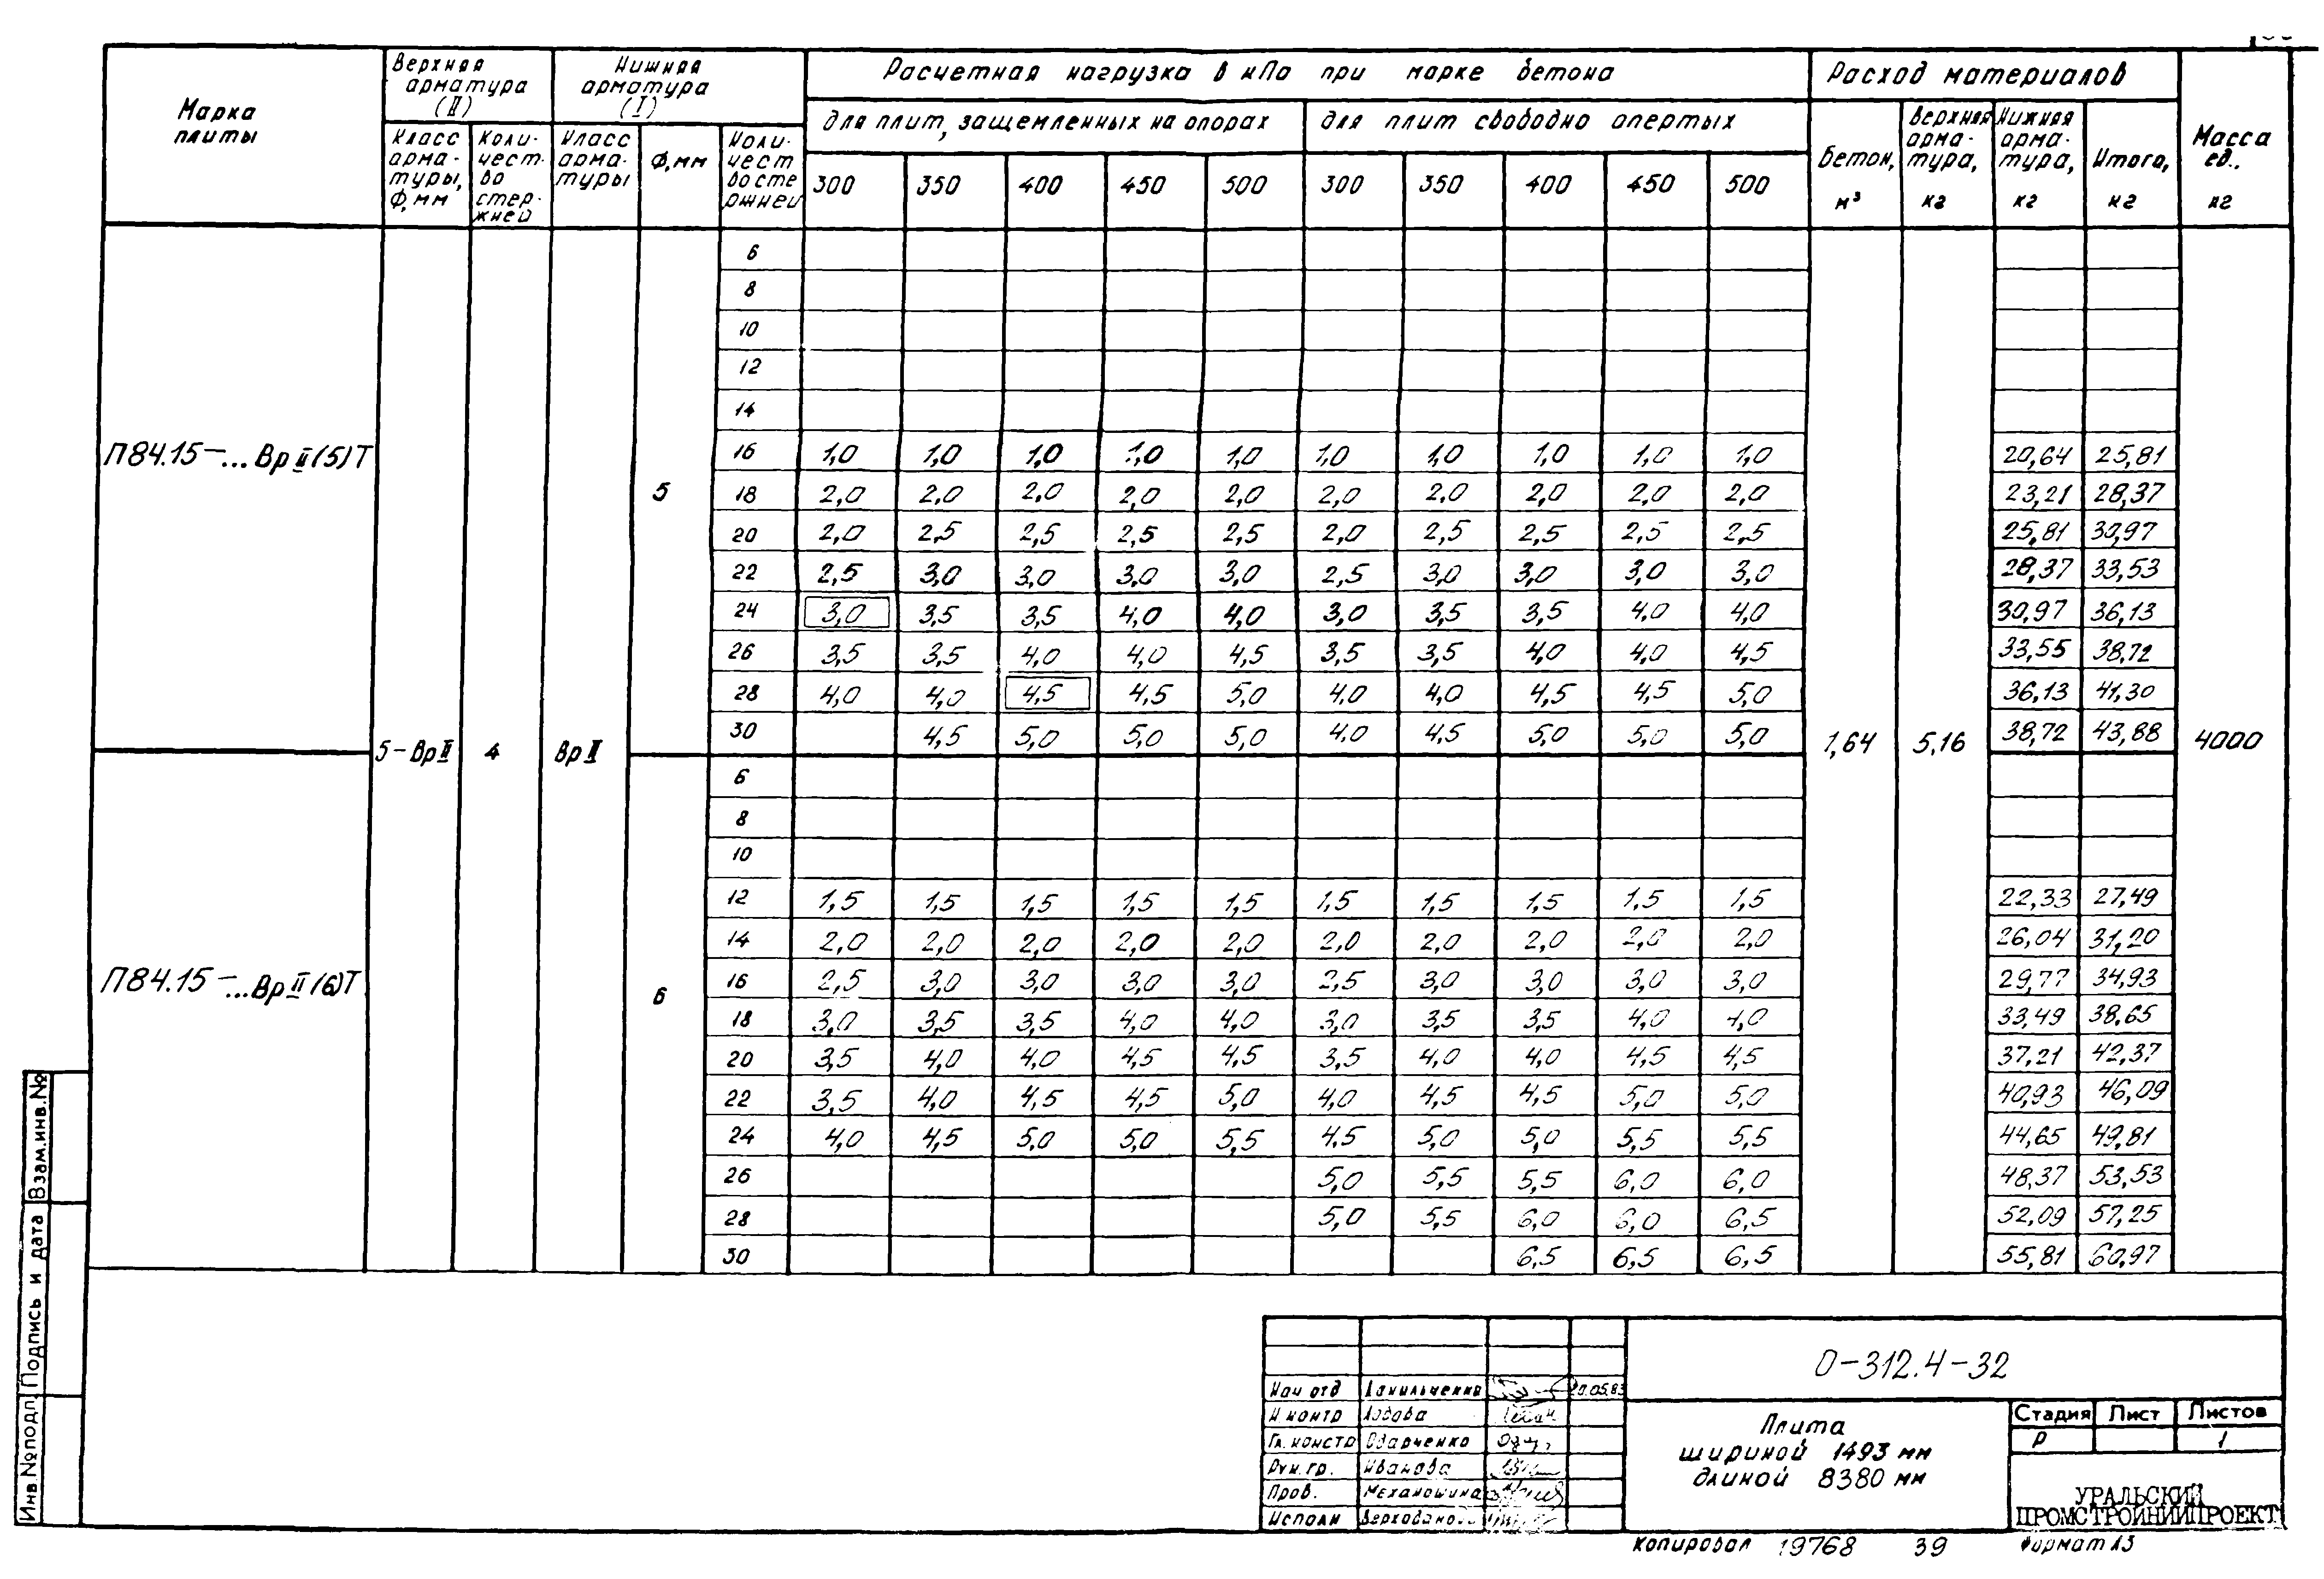 Марка плиты
Верхняя арматура (II)
Нижняя арматура (I)
Расчетная нагрузка в кПа при марке бетона
Расход материалов
Масса ед., кг
Класс арма-туры, Ф, мм
Коли-чест-во стер-жней
Класс арма-туры
Ф, мм
Коли-чест во сте ржней
для плит, защемленных на опорах
для плит свободно опертых
300 350 400 450 500 300 350 400 450 500
Бетон, м³
Верхняя арма-тура, кг
Нижняя арма-тура, кг
Итого, кг
П84.15-...Вр II (5)Т
5-Вр II 4 Вр II 5
6
8
10
12
14
16 1,0 1,0 1,0 1,0 1,0 1,0 1,0 1,0 1,0 1,0 20,64 25,81
18 2,0 2,0 2,0 2,0 2,0 2,0 2,0 2,0 2,0 2,0 23,21 28,37
20 2,0 2,5 2,5 2,5 2,5 2,0 2,5 2,5 2,5 2,5 25,81 30,97
22 2,5 3,0 3,0 3,0 3,0 2,5 3,0 3,0 3,0 3,0 28,37 33,53
24 3,0 3,5 3,5 4,0 4,0 3,0 3,5 3,5 4,0 4,0 30,97 36,13
26 3,5 3,5 4,0 4,0 4,5 3,5 3,5 4,0 4,0 4,5 33,55 38,72
28 4,0 4,0 4,5 4,5 5,0 4,0 4,0 4,5 4,5 5,0 36,13 41,30
30 4,5 5,0 5,0 5,0 4,0 4,5 5,0 5,0 5,0 38,72 43,88
1,64 5,16 4000
П84.15-...Вр II (6)Т
6
6
8
10
12 1,5 1,5 1,5 1,5 1,5 1,5 1,5 1,5 1,5 1,5 22,33 27,49
14 2,0 2,0 2,0 2,0 2,0 2,0 2,0 2,0 2,0 2,0 26,04 31,20
16 2,5 3,0 3,0 3,0 3,0 2,5 3,0 3,0 3,0 3,0 29,77 34,93
18 3,0 3,5 3,5 4,0 4,0 3,0 3,5 3,5 4,0 4,0 33,49 38,65
20 3,5 4,0 4,0 4,5 4,5 3,5 4,0 4,0 4,5 4,5 37,21 42,37
22 3,5 4,0 4,5 4,5 5,0 4,0 4,5 4,5 5,0 5,0 40,93 46,09
24 4,0 4,5 5,0 5,0 5,5 4,5 5,0 5,0 5,5 5,5 44,65 49,81
26 5,0 5,5 5,5 6,0 6,0 48,37 53,53
28 5,0 5,5 6,0 6,0 6,5 52,09 57,25
30 6,5 6,5 6,5 55,81 60,97
Взам.инв.№
Подпись и дата
Инв.№подл.
О-312.4-32
Нач отд Данильченко 20.05.83
Н контр
Гл. констр Одарченко
Рук. гр. Иванова
Пров. Механошина
Исполн
Плита
шириной 1493 мм
длиной 8380 мм
Стадия Лист Листов
Р 1
УРАЛЬСКИЙ
ПРОМСТРОЙНИИПРОЕКТ
Копировал 19768 39 Формат А3